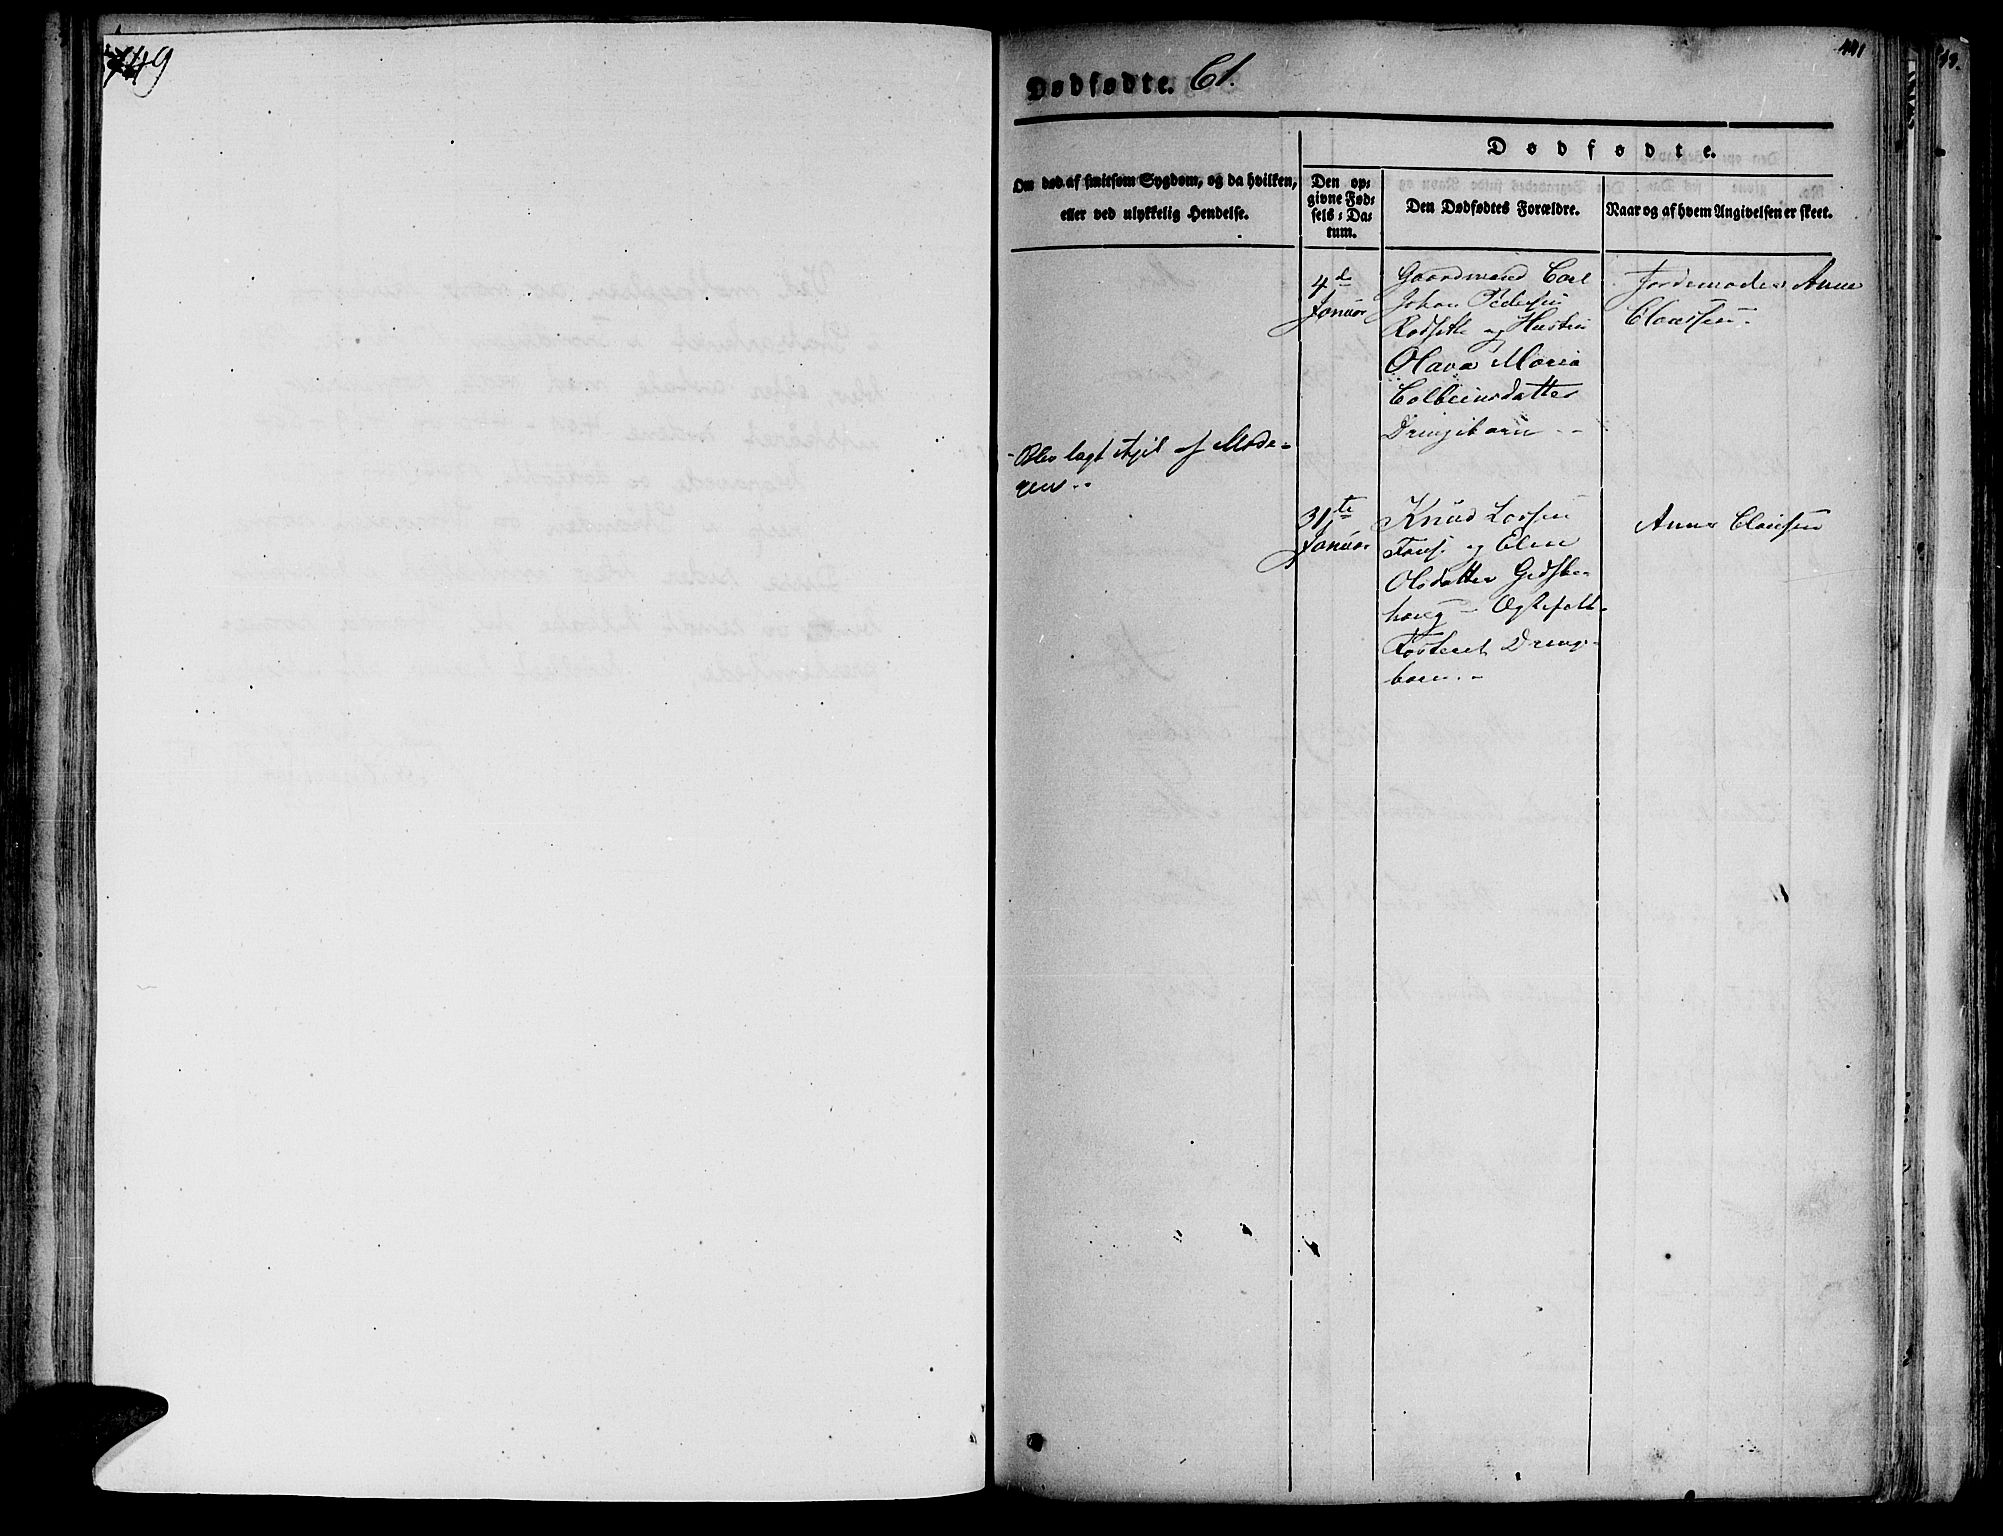 749
Dødfødte. 61.
441
Dødfødte.
Om død af smitsom Sygdom, og da hvilken,
eller ved ulykkelig Hendelse.
Den op-
givne Fød-
sels-Da-
tum.
Den Dødfødtes Forældre.
Naar og af hvem Angivelsen er skeet.
4d
Januar
Gaardmand Carl
Johan Pedersen
Rødsetle og Hustru
Olava Maria
Colbeinsdatter
Drengebarn
Jordemoder Anne
Clausen.
Blev lagt ihjel af Mode-
ren
31te
Januar
Knud Larsen
og Elen
Olsdatter
houg - Egtefolk
Fosteret Drenge-
barn.
Anne Clausen